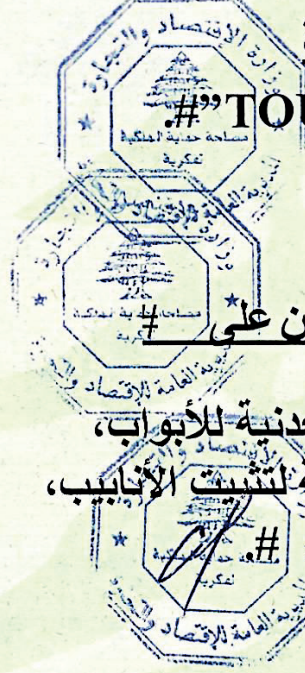 وزارة الاقتصاد والتجارة
مصلحة حماية الملكية
الفكرية
المديرية العامة للاقتصاد والتجارة
#”TOU
وزارة الاقتصاد والتجارة
مصلحة حماية الملكية
الفكرية
المديرية العامة للاقتصاد والتجارة
ن على #
دنية للأبواب،
لتثبيت الأنابيب،
مصلحة حماية الملكية
الفكرية
#.
المديرية العامة للاقتصاد والتجارة